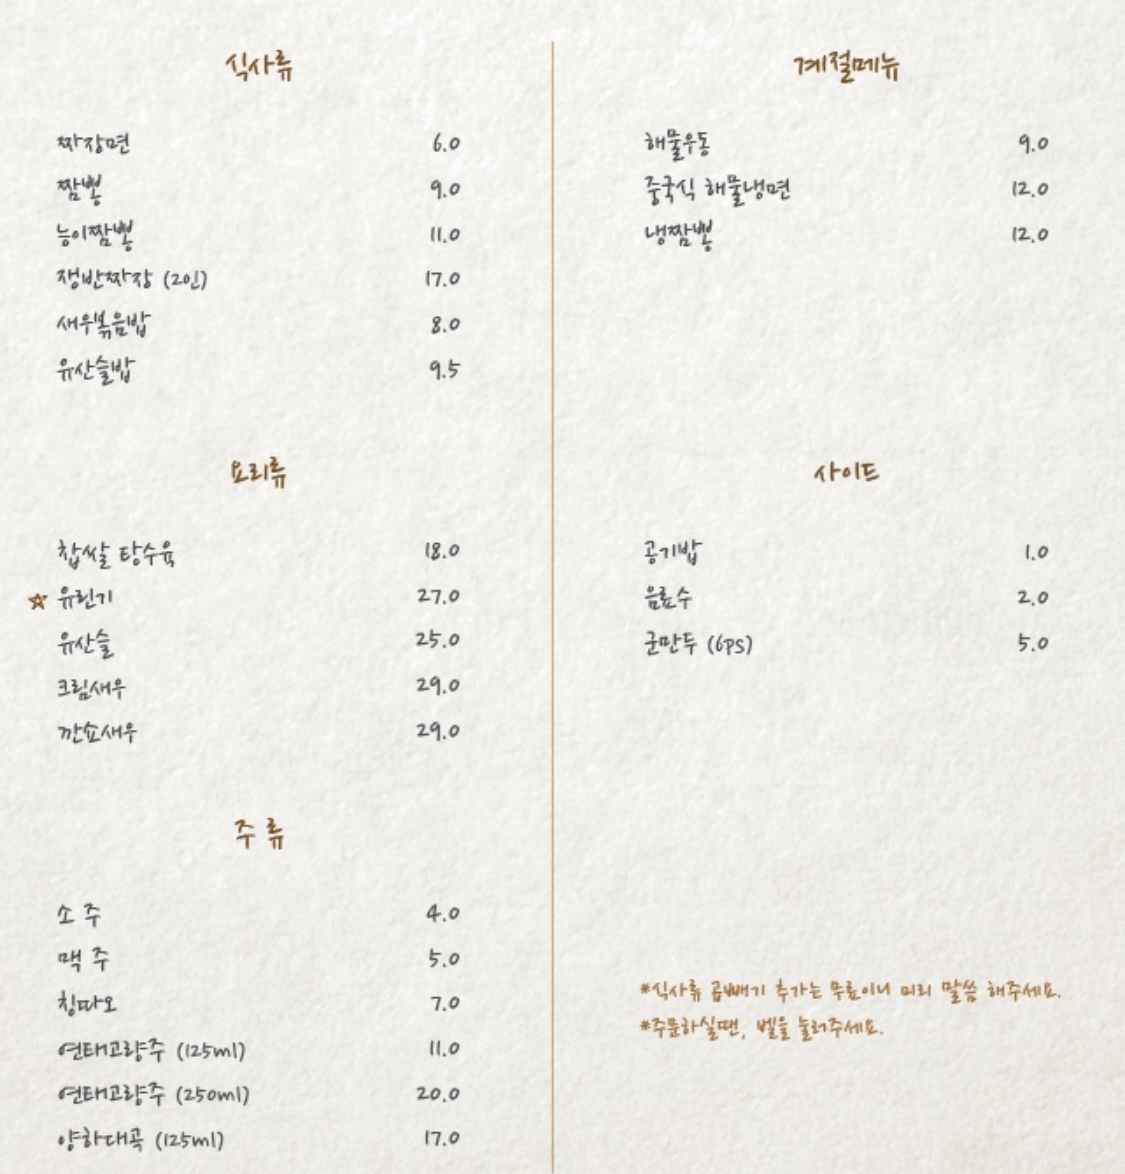 식사류
짜장면 6.0
짬뽕 9.0
능이짬뽕 11.0
쟁반짜장 (2인) 17.0
새우볶음밥 8.0
유산슬밥 9.5
요리류
찹쌀 탕수육 18.0
☆ 유린기 27.0
유산슬 25.0
크림새우 29.0
깐쇼새우 29.0
주 류
소 주 4.0
맥 주 5.0
칭따오 7.0
연태고량주 (125ml) 11.0
연태고량주 (250ml) 20.0
양하대곡 (125ml) 17.0
계절메뉴
해물우동 9.0
중국식 해물냉면 12.0
냉짬뽕 12.0
사이드
공기밥 1.0
음료수 2.0
군만두 (6ps) 5.0
*식사류 곱빼기 추가는 무료이니 미리 말씀 해주세요.
*주문하실땐, 벨을 눌러주세요.